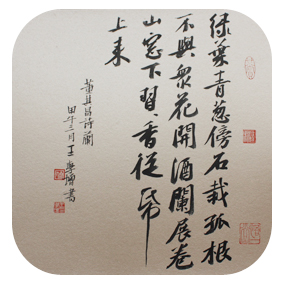 綠葉青葱傍石栽孤根
不與衆花開酒闌展卷
山窓下習習香從紙
上来
董其昌詩蘭
甲午三月王學增書